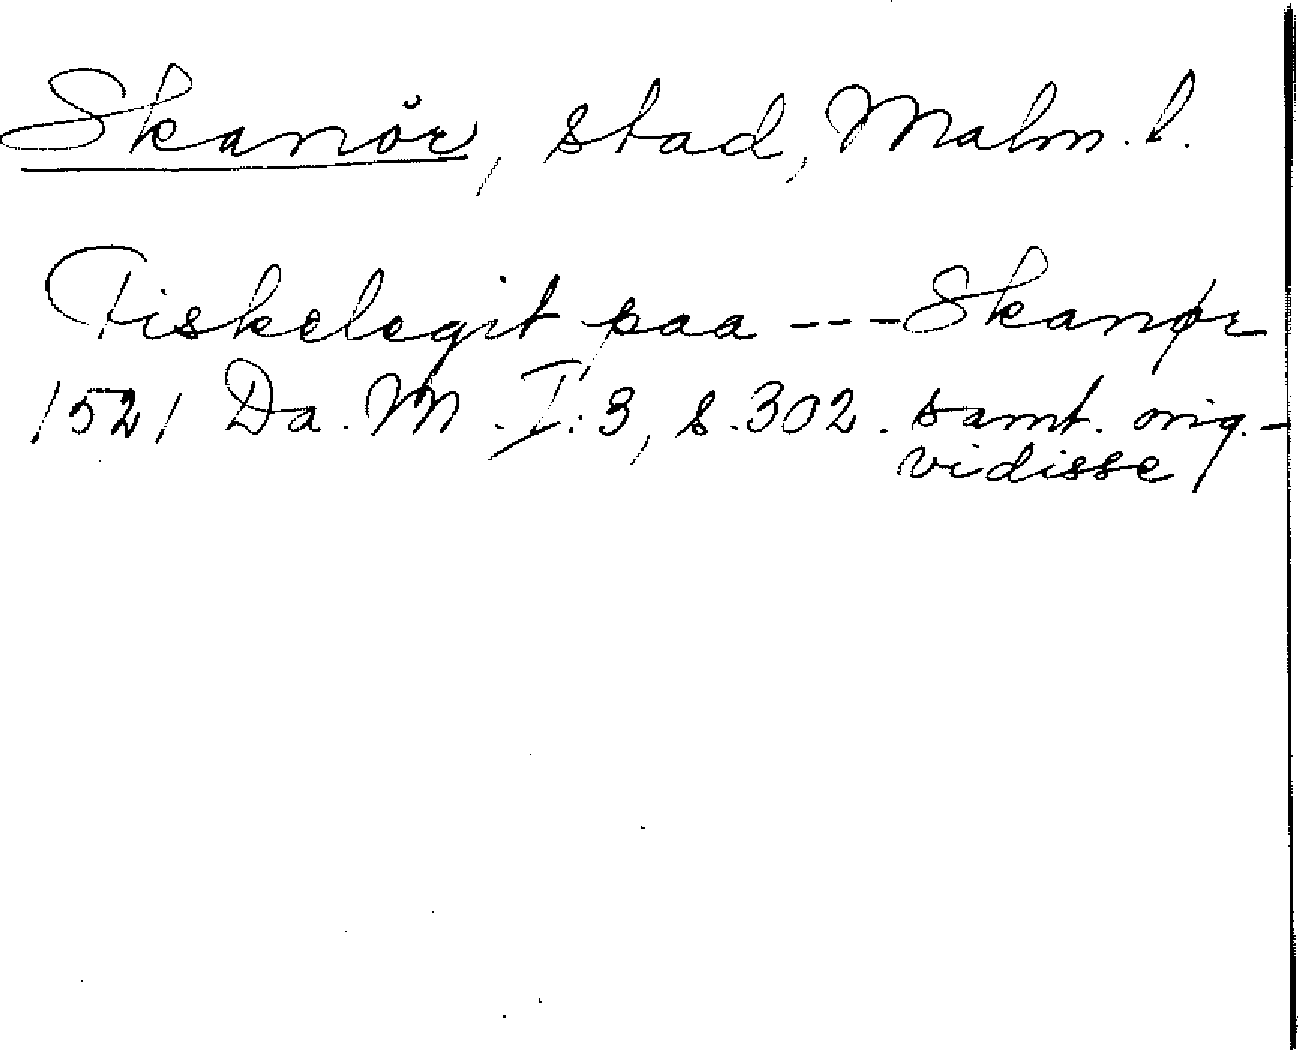 Skanör, stad, Malm. l.
Fiskelegit paa --- Skanør
1521 Da. M. I:3, s. 302. samt. orig.-
vidisse